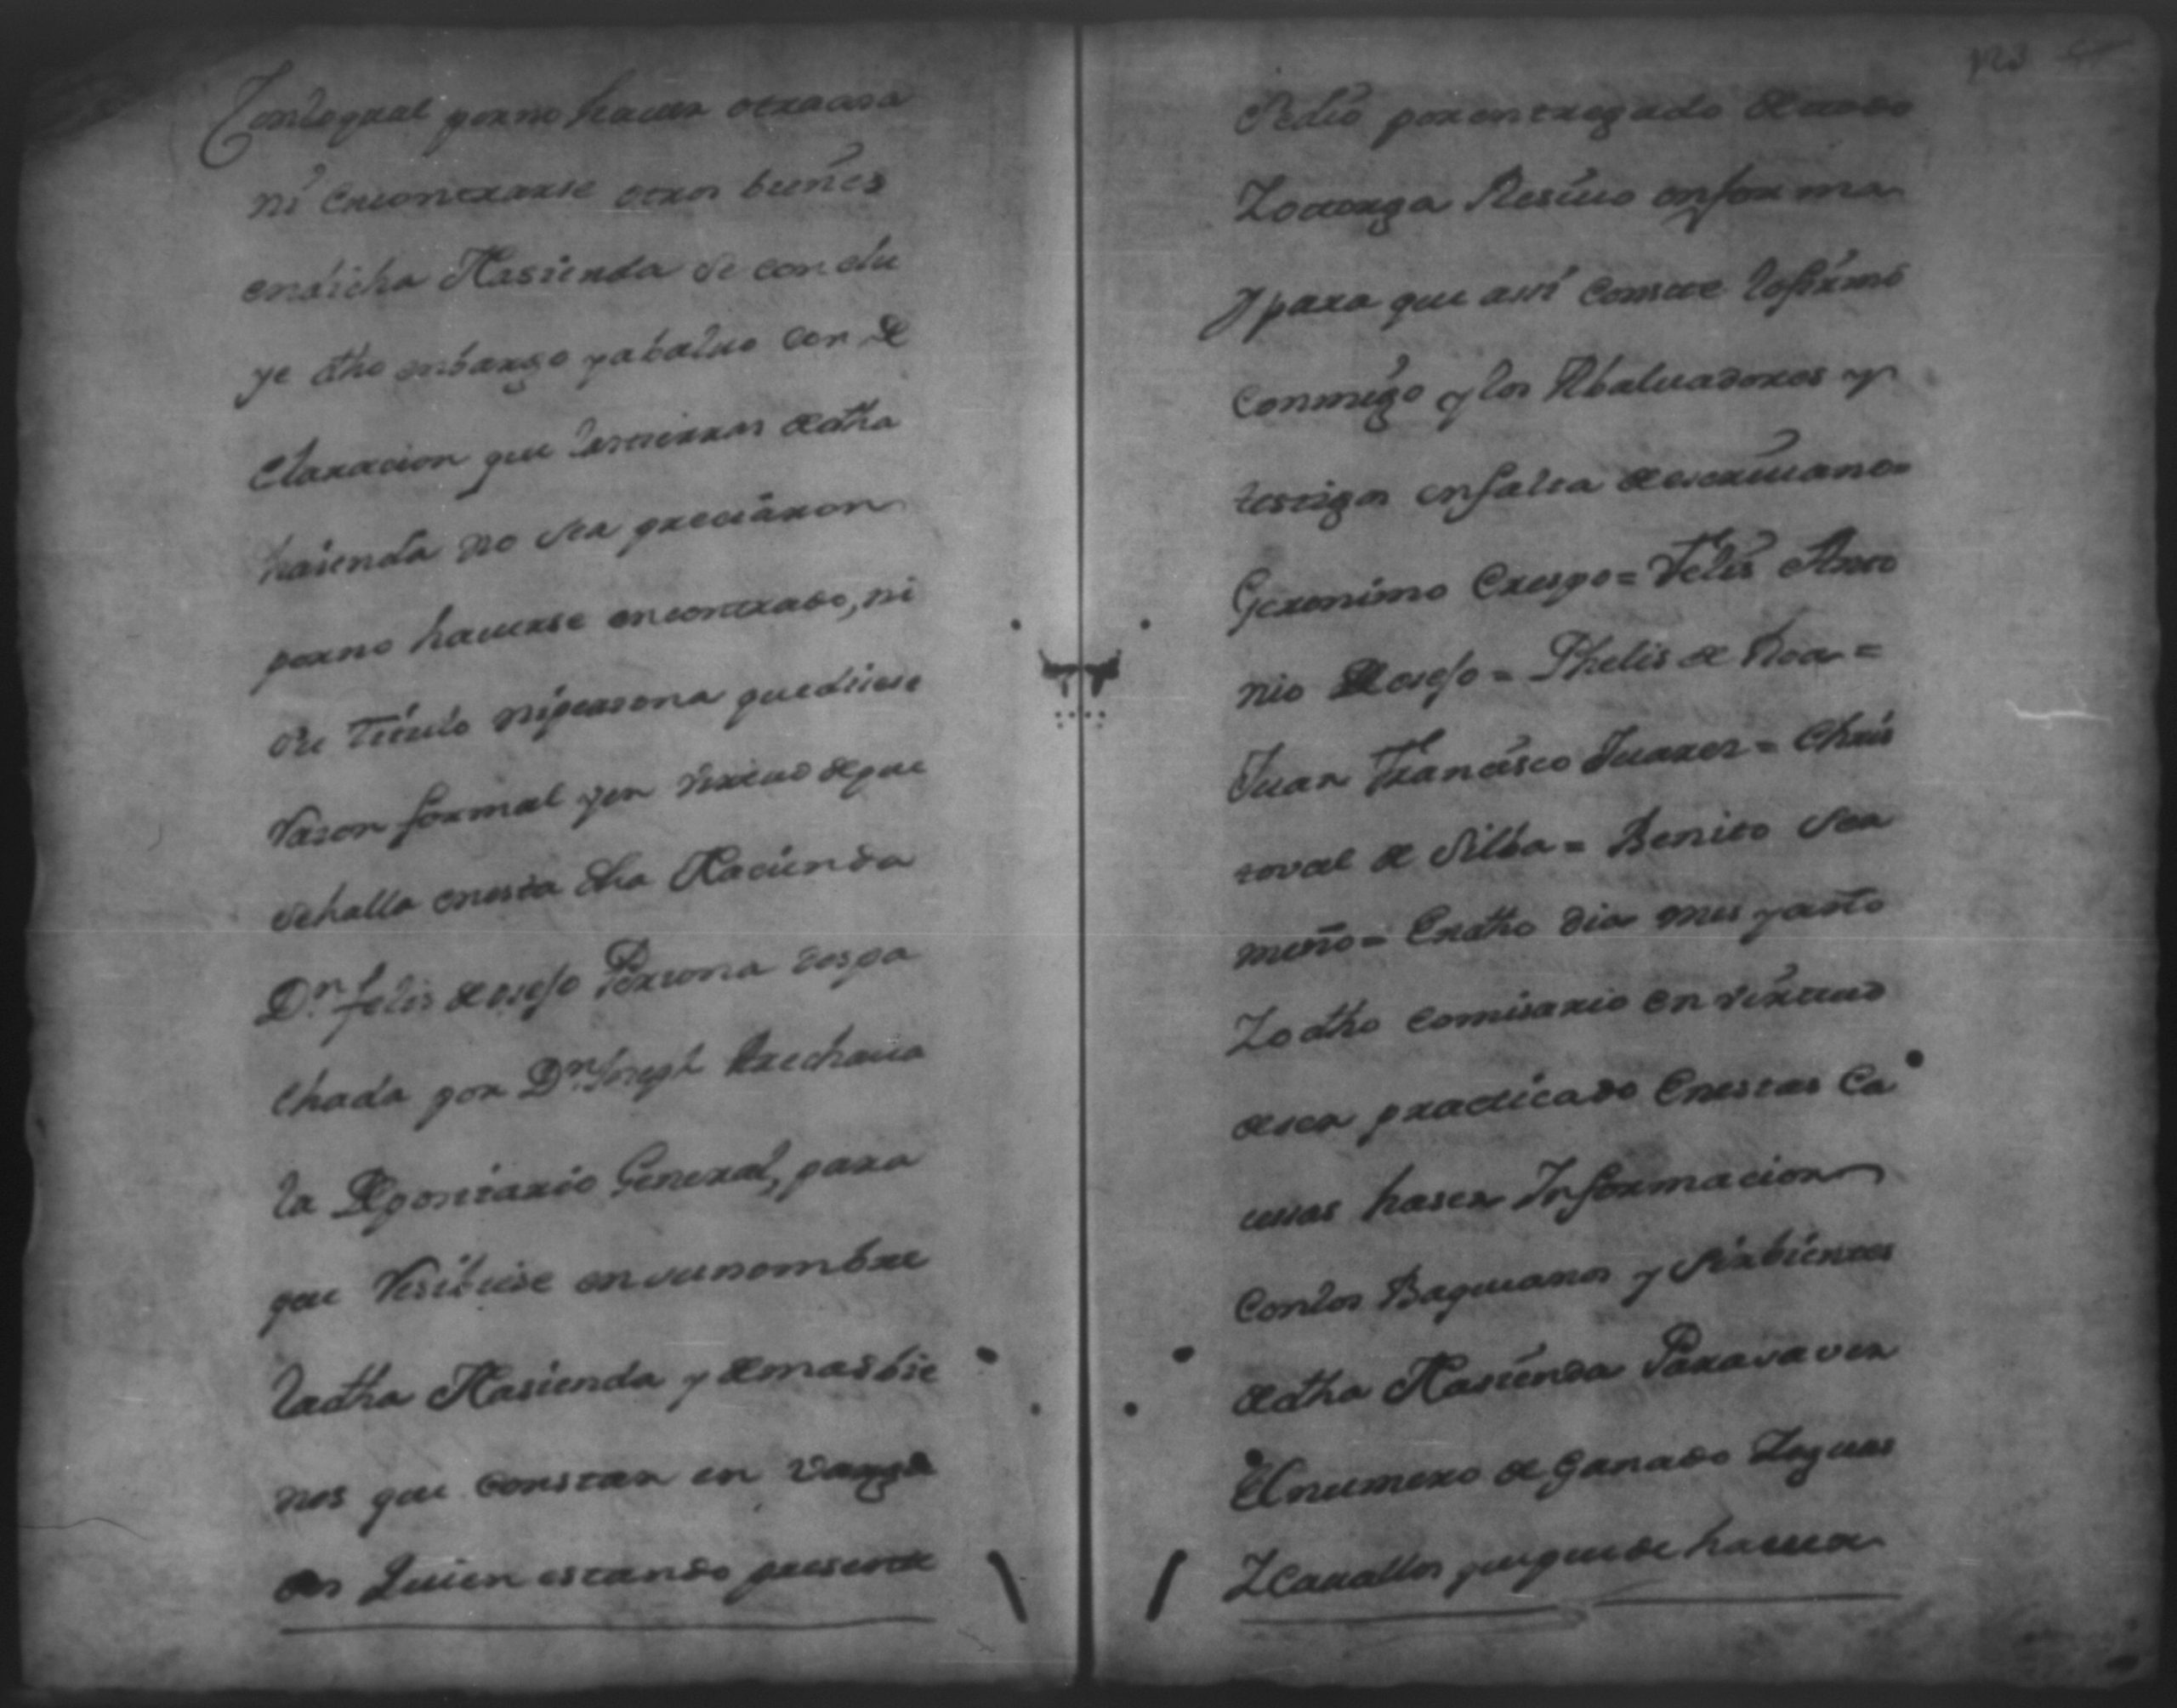 Conloqual porno haver otracosa
ni encontrarse otros bienes
endicha Hasienda se conclu
ye dho enbargo y abaluo con de
claracion que lastierras dedha
hasienda no sea preciaron
porno haverse encontrado, ni
su titulo nipersona quediese
rason formal yen virtud deque
sehalla enesta dha Hacienda
Dn. felis deosefo Persona despa
chada por Dn. Joseph Arechava
la Depocitario General, para
que resibiese en sunombre
ladha Hasienda y demas bie
nes que constan en
dos Quien estando presente
123
Sedio porentregado detodo
Lootorga Resivo enforma
Ypara que assi Conste lofirmó
Conmigo y los Abaluadores y
testigos enfalta deescrivano=
Geronimo Crespo= Felis Anto
nio Deosefo= Phelis de Roa=
Juan Francisco Juares= Chris
toval de Silba= Benito Sea
meño= Endho dia mes yaño
Lo dho comisario en virtud
deser practicado Enestas Ca
ussas haser Informacion
Conlos Baquianos y Sirbientes
dedha Hasienda Parasaver
El numero de Ganado Yeguas
Y Cavallos quepuede haver